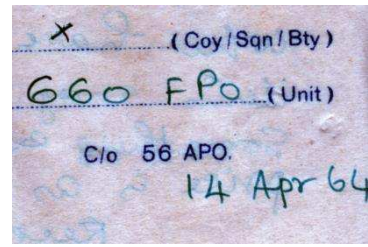 x (Coy / Sqn / Bty)
660 FPO (Unit)
C/o 56 APO.
14 Apr 64